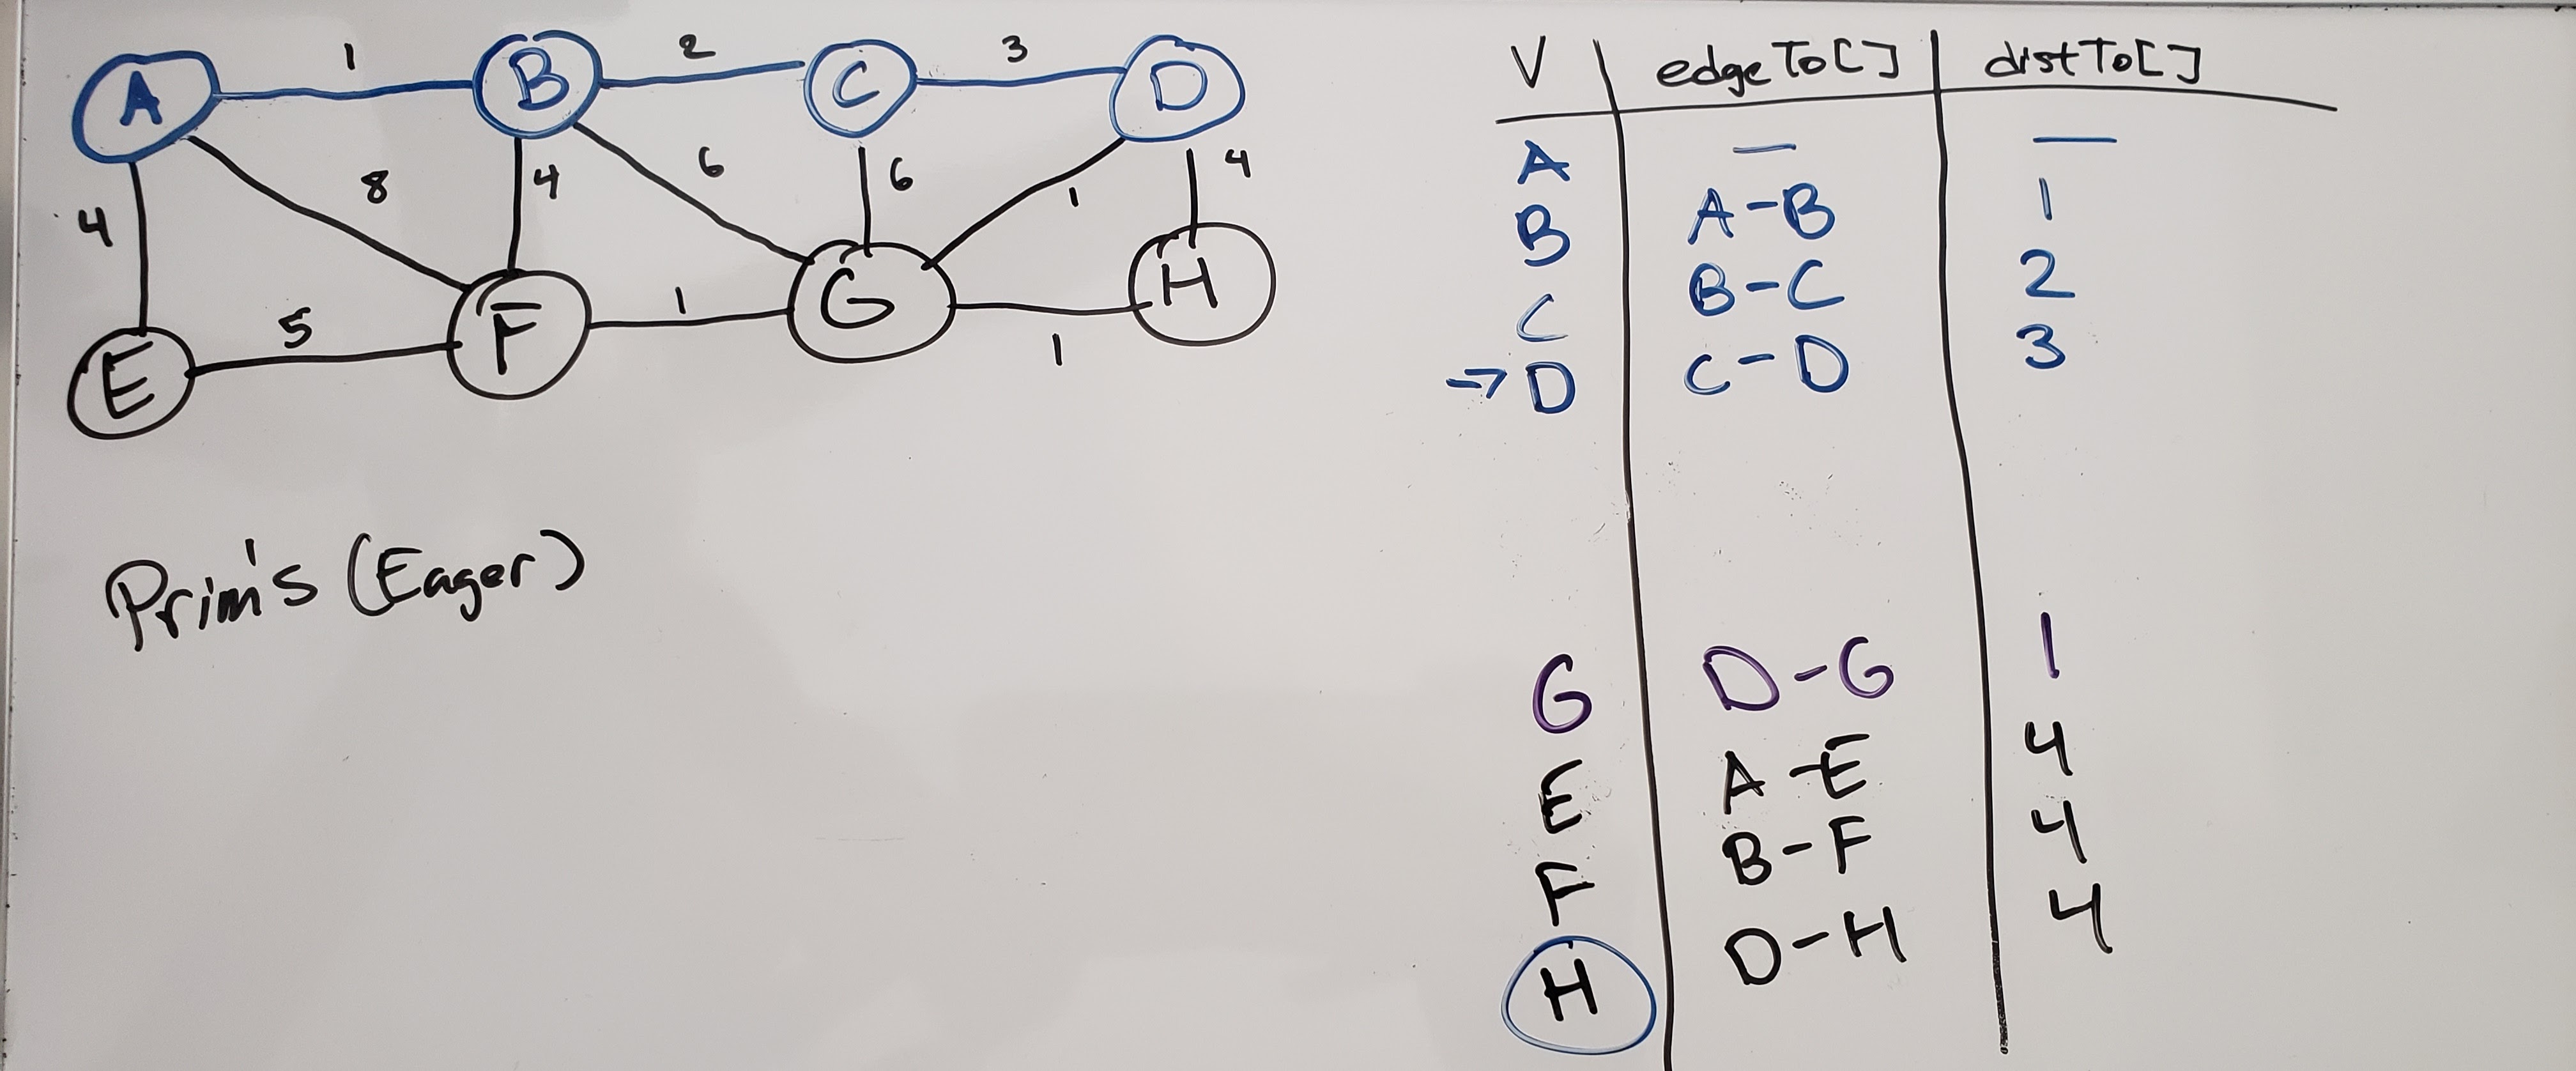 1 2 3
A B C D
4 8 4 6 6 1 4
E 5 F 1 G 1 H
Prim's (Eager)
V edgeTo[] distTo[]
A — —
B A-B 1
C B-C 2
→ D C-D 3
G D-G 1
E A-E 4
F B-F 4
H D-H 4